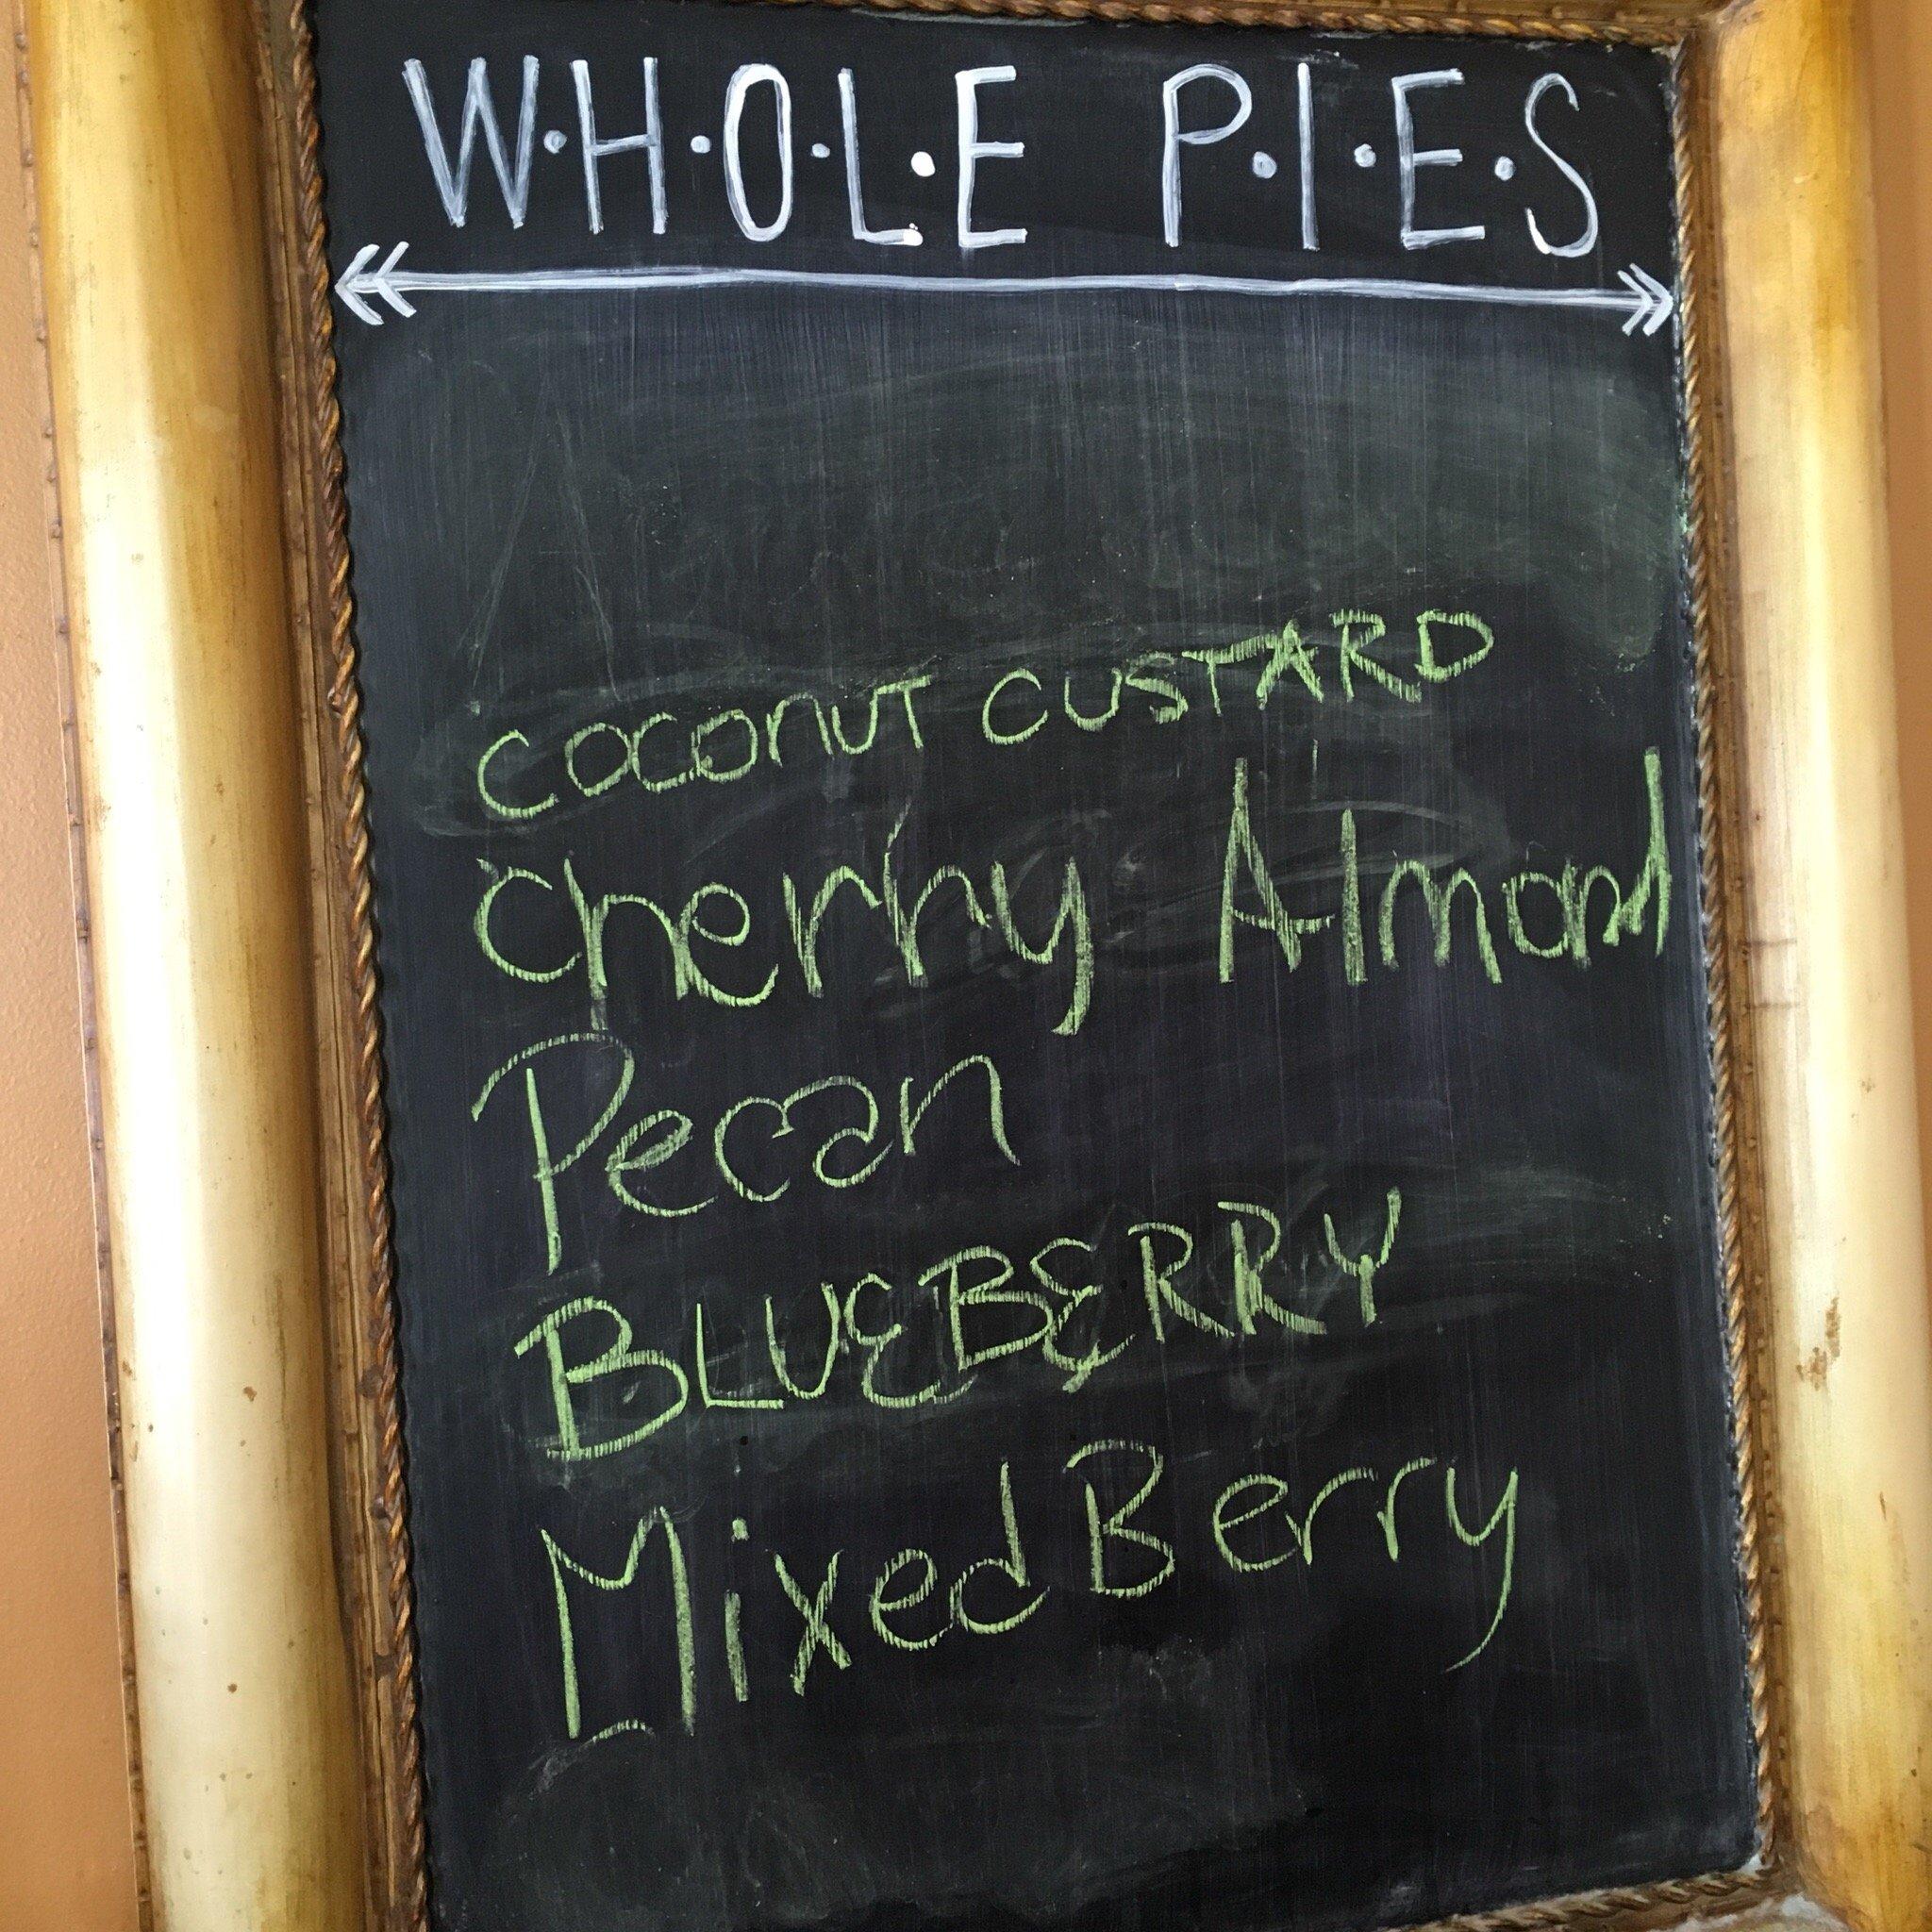 W·H·O·L·E P·I·E·S
COCONUT CUSTARD
Cherry Almond
Pecan
BLUEBERRY
Mixed Berry